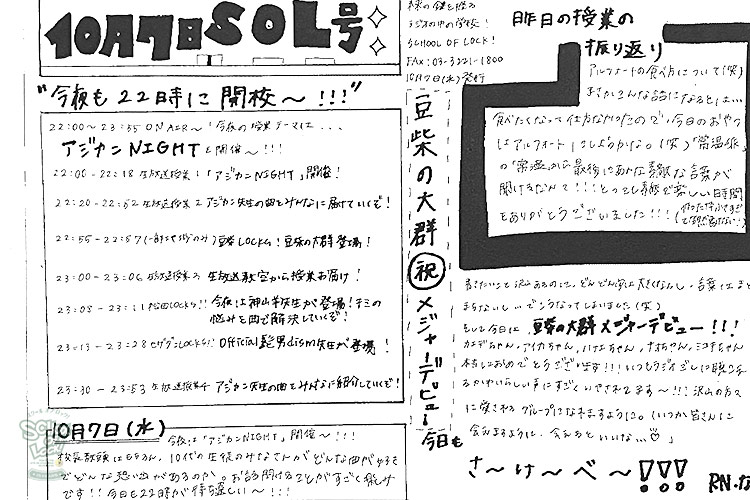 10月7日SOL号
"今夜も22時に開校〜!!!"
22:00〜23:55 ON AIR〜「今夜の授業テーマは...
アジカンNIGHTを開催〜!!!
22:00-22:18 生放送授業1「アジカンNIGHT」開催!
22:20-22:52 生放送授業2 アジカン先生の曲をみんなに届けていくぞ!
22:55-22:57(一部地域のみ)豆柴LOCKS! 豆柴の大群登場!
23:00-23:06 生放送授業3 生放送教室から授業お届け!
23:08-23:11 LOCKS!! 今夜は神山羊先生が登場!キミの
悩みを曲で解決していくぞ!
23:13-23:28 LOCKS!! Official髭男dism先生が登場!
23:30-23:53 生放送授業4 アジカン先生の曲をみんなに紹介していくぞ!
10月7日(水)
今夜は「アジカンNIGHT」開催〜!!!
校長教頭はもちろん、10代の生徒のみなさんがどんな曲が好き
でどんな思い出があるのか。お話聞けることがすごく楽しみ
です!!今日も22時が待ち遠しい〜!!!
ラジオの中の学校!
SCHOOL OF LOCK!
FAX:03-3221-1800
10月7日(水)発行
豆柴の大群
祝
メジャーデビュー
昨日の授業の
振り返り
アルフォートの食べ方について(笑)
まさかこんな話になるとは...
食べたくなって仕方なかったので、今日のおやつ
はアルフォートにしようかな。(笑)「常温派」
の「常温」から最後にあんな素敵な言葉が
聞けるなんて!!!とっても素敵で楽しい時間
をありがとうございました!!!
書きたいこと沢山あるのに、どんどん字は大きくなるし、言葉はまと
まらないし...でこうなってしまいました(笑)
そして今日は、豆柴の大群メジャーデビュー!!!
カエデちゃん、アイカちゃん、ハナエちゃん、ナオちゃん、ミユキちゃん
本当におめでとうございます!!!いつもラジオごしに聴こえ
るかわいらしい声にすごくいやされてます〜!!!沢山の方々
に愛されるグループになれますように。(いつか皆さんに
会えますように、会えるといいな...♡)
今日も
さ〜け〜べ〜!!!
RN.な